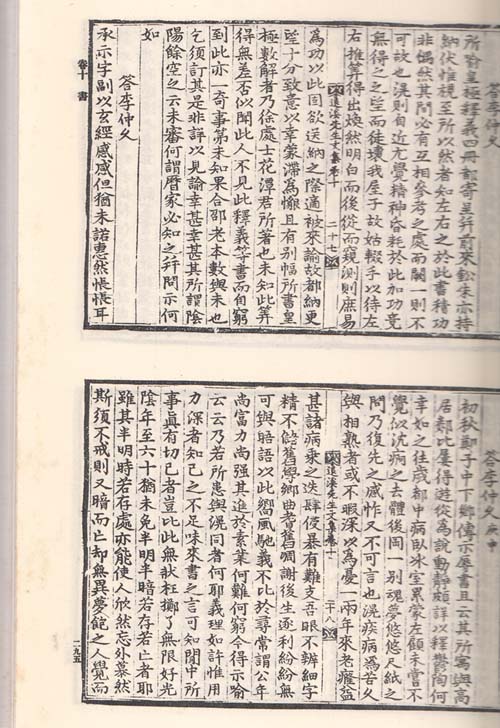 答李仲久
所喩皇極釋義四冊都寄呈幷前來鈆朱亦持
納伏惟視至所以然者知左右之於此書積功
非偶然其間必有互相參考之處而闕一則不
可故也滉則自近尤覺精神昏耗於此加功竟
無得之之望而徒壞我屋子故姑輟手以待左
右推筭得出煥然明白而後從而窺測則庶易
退溪先生文集卷十 二十七
為功以此固欲送納之際適被來諭故都納更
望十分致意以幸蒙滯為懇且有别幅所書皇
極數解者乃徐處士花潭君所著也未知此筭
得無差否似聞此人不見此釋義等書而自窮
到此亦一奇事第未知果合邵老本數與未也
乞須訂其是非詳以見諭幸甚幸甚其所謂陰
陽餘空之云未審何謂曆家必知之幷問示何
如
答李仲久
承示字副以玄經感感但猶未諾惠然悵悵耳
卷十 書
答李仲久 庚申
初秋鄭子中下鄉傳示辱書且云其所寓與高
居鄰比屢得遊從為說動靜頗詳以釋鬱陶何
幸如之往歲都中病臥氷室累蒙左顧未嘗不
覺似沈痾之去體後周一别魂夢悠悠尺紙之
問乃復先之感怍又不可言也滉疾病為苦久
與相熟者或不暇深以為憂一兩年來老癃益
退溪先生文集卷十 二十八
甚諸病乘之迭肆侵暴有難支吾眼不辨細字
精不能舊學鄉曲耆舊凋謝後生逐利紛紛無
可與晤語以此嚮風馳義不比於尋常謂公年
尚富力尚强其進於素業何難何窮今得示喻
云云乃若所患與滉同者何耶義理如許惟用
力深者知己之不足味來書之言可知閒中所
事眞有切己者豈比此無狀枉擲了無限好光
陰年至六十猶未免半明半暗若存若亡者耶
雖其半明時若存處亦能使人欣然忘外慕然
斯須不戒則又暗而亡却無異夢飽之人覺而
一九五